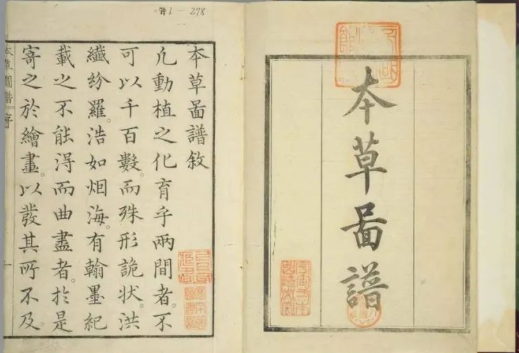 夲草啚譜
夲草啚譜敘
凡動植之化育乎兩間者。不
可以千百數。而殊形詭状。洪
纖紛羅。浩如烟海。有翰墨紀
載之不能得而曲盡者。於是
寄之於繪畫。以發其所不及
1-278